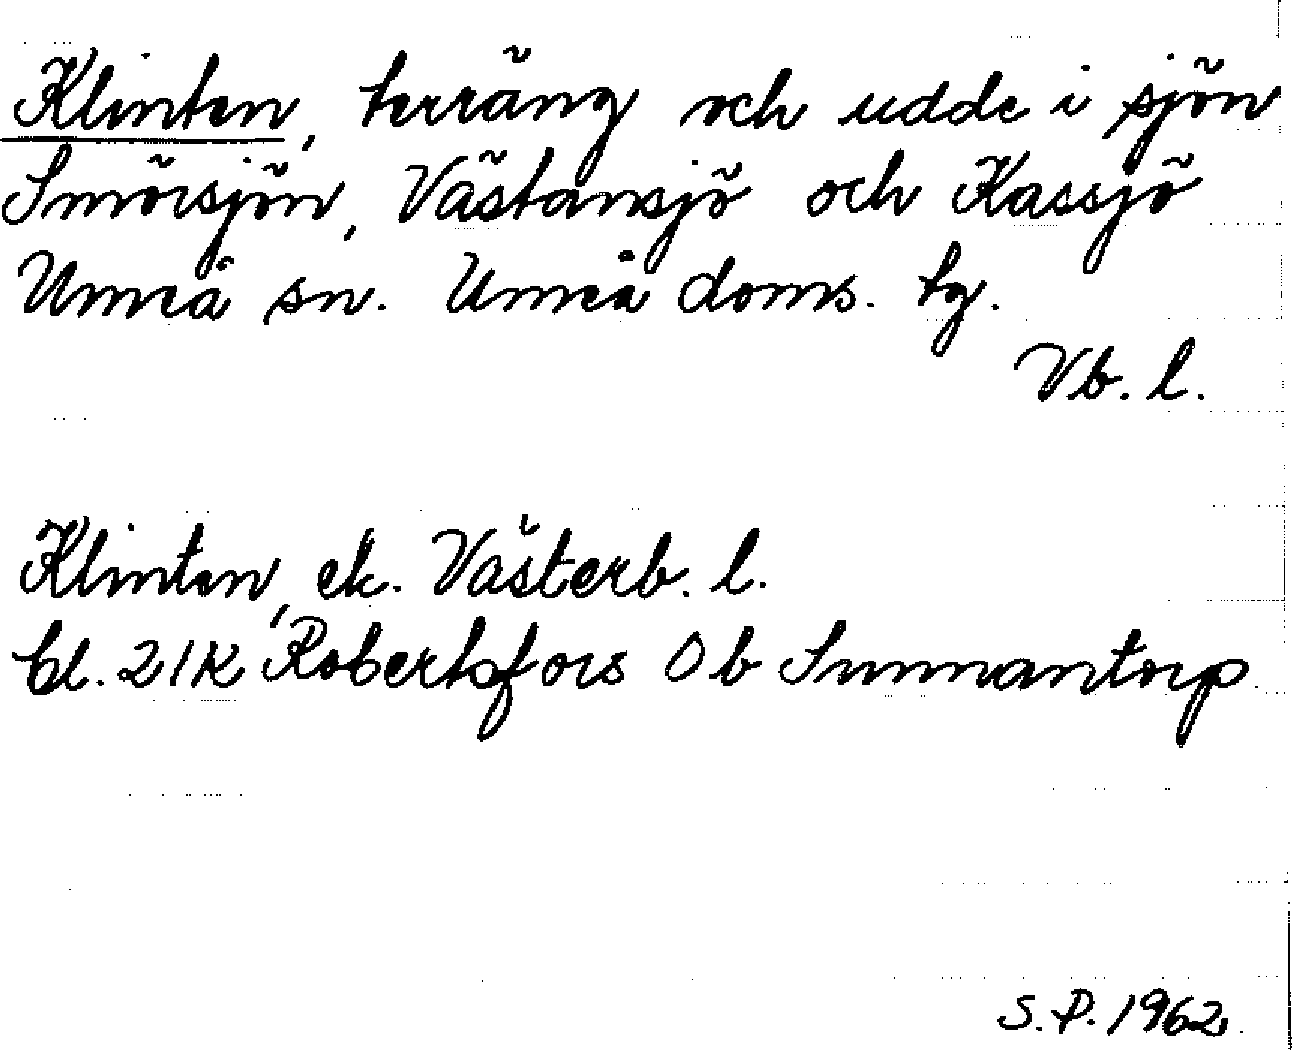 Klinten, terräng och udde i sjön
Smörsjön, Västansjö och Kassjö
Umeå sn. Umeå doms. tg.
Vb. l.
Klinten, ek. Västerb. l.
bl. 21K Robertsfors 0b Sunnantorp
S.P. 1962.